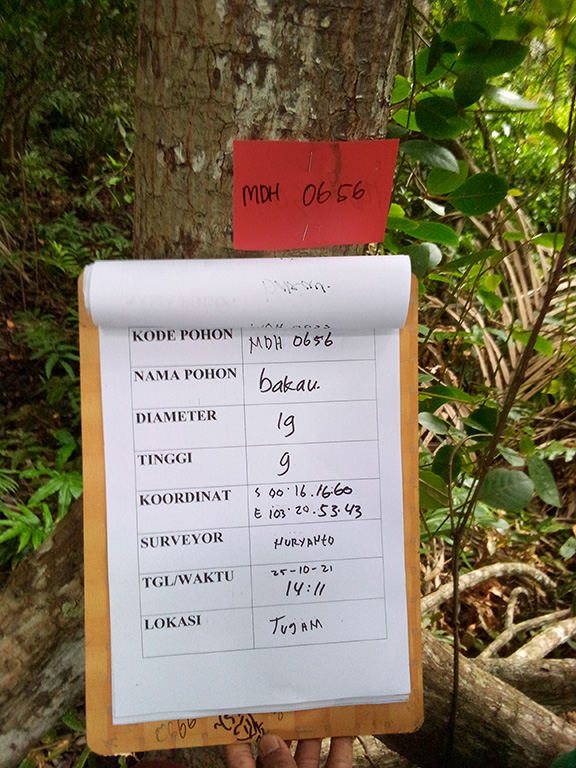 MDH 0656
KODE POHON MDH 0656
NAMA POHON bakau.
DIAMETER 19
TINGGI 9
KOORDINAT S 00.16.16.60
E 103.20.53.43
SURVEYOR NURYANTO
TGL/WAKTU 25-10-21
14:11
LOKASI TUJAM